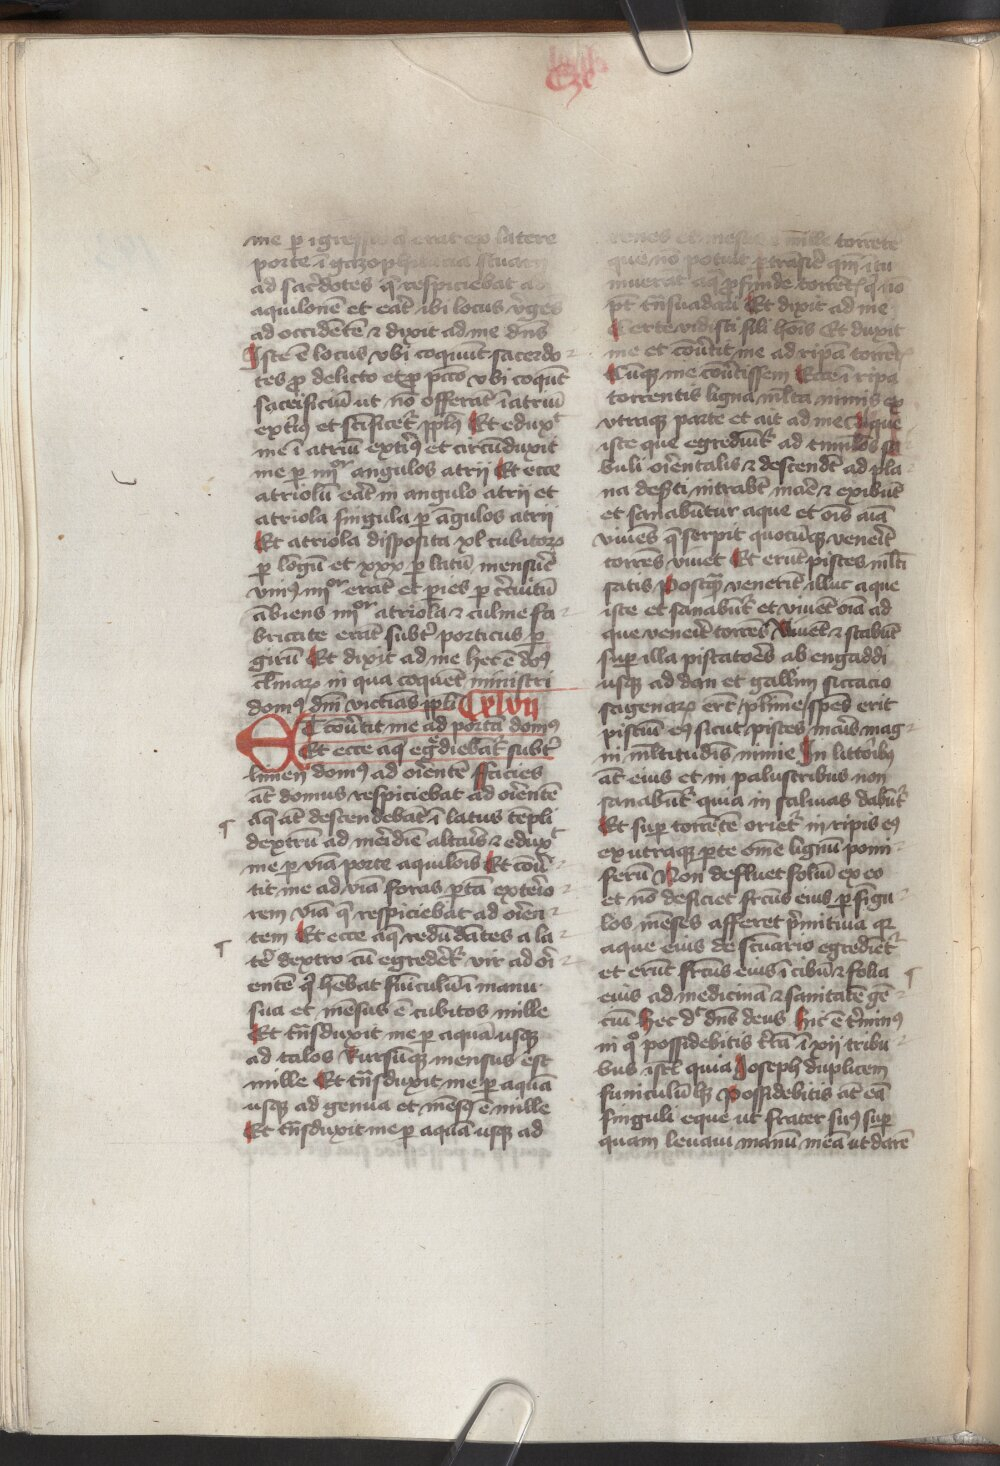 me ꝑ īgressū q̄ erat ex latere
porte ī gazophilacia
ad sac̄dotes q̄ respiciebāt ad
aquilonē et erāt ibi locus v̄gēs
ad occidētē ⁊ dixit ad me dn̄s
Iste ē locus vbi coquūt sacerdo
tes ꝓ delicto et ꝓ pctō vbi coqūt
sacrificiū ut nō offerāt ī atriū
exteri⁹ et scīficet᷑ ppl̄s Et eduxᵗ
me ī atriū exteri⁹ et circūduxit
me ꝑ iiijᵒʳ angulos atrij Et ecce
atriolū erāt in angulo atrij et
atriola singula ꝑ āgulos atrij
Et atriola disposita xl cubitoꝝ
ꝑ lōgū et xxx ꝑ latū mensur̄
vni⁹ iiijᵒʳ erāt et paries ꝑ circuitū
ābiens iiijᵒʳ atriola ⁊ culine fa
bricate erāt subt᷑ porticus ꝑ
girū Et dixit ad me hec ē dom⁹
culinaꝝ in qua coquēt ministri
dom⁹ dn̄i victīas ppl̄i Cxlvij
Et cōūtit me ad portā dom⁹
Et ecce aq̄ egrediebāt᷑ subt᷑
limen dom⁹ ad oriētē Facies
āt domus respiciebat ad oriētē
Aq̄ āt descendebāt ī latus tēpli
dextrū ad meridiē altaris ⁊ eduxᵗ
me ꝑ viā porte aquilōis Et cōū
tit me ad viā foras portā exterio
rem viā q̄ respiciebat ad oriēn
tem Et ecce aq̄ redūdātes a la
te᷑ dextro cū egreder̄ vir ad ori
entē q̄ hēbat funiculū ī manu
sua et mēsus ē cubitos mille
Et trāsduxit me ꝑ aquā usqꝫ
ad talos Rursūqꝫ mensus est
mille Et trāsduxit me ꝑ aquā
usqꝫ ad genua et mēsꝰ ē mille
Et trāsduxit me ꝑ aquā usqꝫ ad
renes et mensus ē mille torrētē
que nō potui ꝑtrāsir̄ qm̄ ītu
muerāt aq̄ ꝓfunde torrētꝭ q̄ nō
pt̄ trāsuadari Et dixit ad me
Certe vidisti fili hōis Et duxit
me et cōūtit me ad ripā torrētꝭ
Cūqꝫ me cōūtissem Ecce ī ripa
torrentis ligna ml̄ta nimis ex
vtraqꝫ parte et ait ad me Aque
iste que egrediūt᷑ ad tumulos sa
buli oriētalis ⁊ descendūt ad pla
na desᵉti intrabūt mare ⁊ exibūt
et sanabūtur aque et oīs aīa
vivēs q̄ serpit quocūqꝫ venerit
torrēs vivet Et erūt pistes ml̄ti
satis Postqꝫ venerīt illuc aque
iste et sanabūt᷑ et vivēt oīa ad
que venerit torrēs vivēt ⁊ stabūt
super illa piscatores ab engaddi
usqꝫ ad dan et gallim siccacio
sagenaꝝ erūt plrīme spēs erit
pisciū eꝰ sicut pistes maris mag
ni ml̄titudis nimie In littoribꝰ
āt eius et in palustribus non
sanabūt᷑ quia in salinas dabūt᷑
Et super torrētē oriet᷑ in ripis eꝰ
ex utraqꝫ ꝑte ōme lignū pomi
ferū Non defluet foliū ex eo
et nō deficiet frcūs eius ꝑ singu
los mēses afferet pᵢmitiva qꝛ
aque eius de scūario egrediēt᷑
et erūt frcūs eius ī cibū ⁊ folia
eius ad medicinā ⁊ sanitatē gē
ciū hec dᵗ dn̄s deus hic ē tminꝰ
in qͦ possidebitis tr̄ā ī xij tribu
bus isrl̄ quia Ioseph duplicem
funiculū hꝫ Possidebitis āt eā
singuli eque ut frater suꝰ super
quam levavi manū meā ut darē